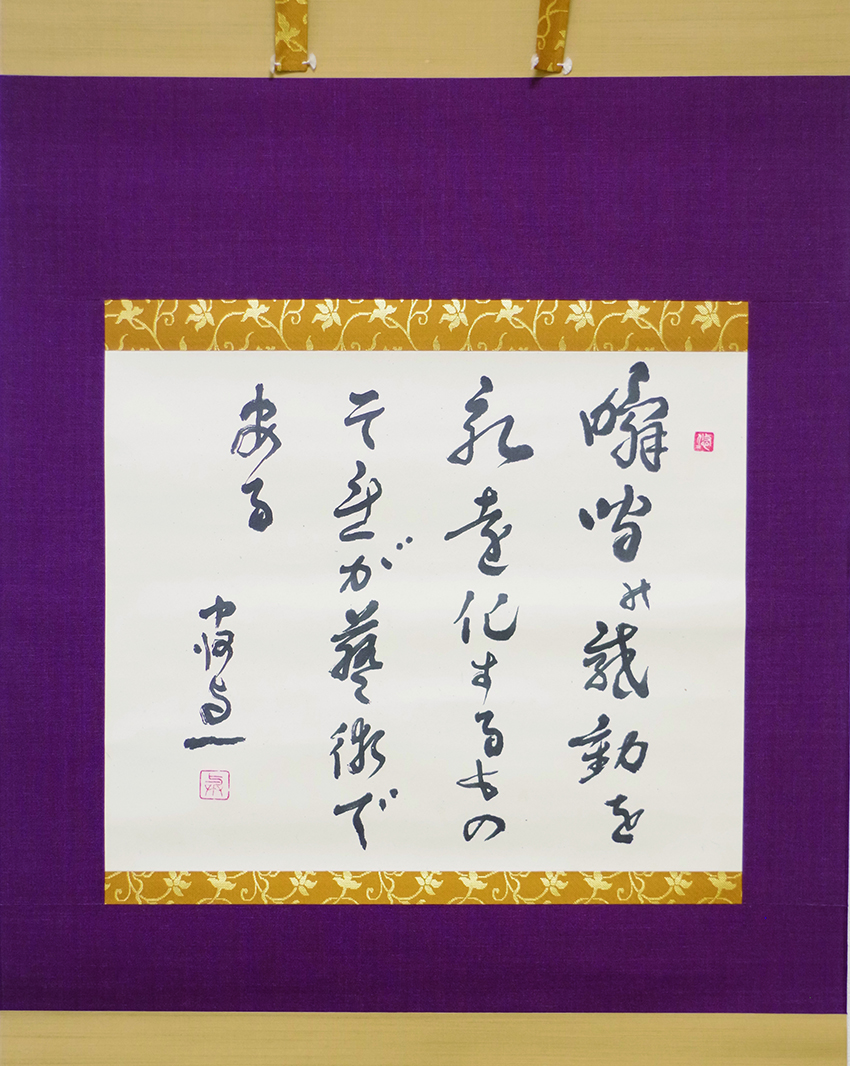 瞬時の鼓動を
永遠化するもの
それが藝術で
ある
中河与一